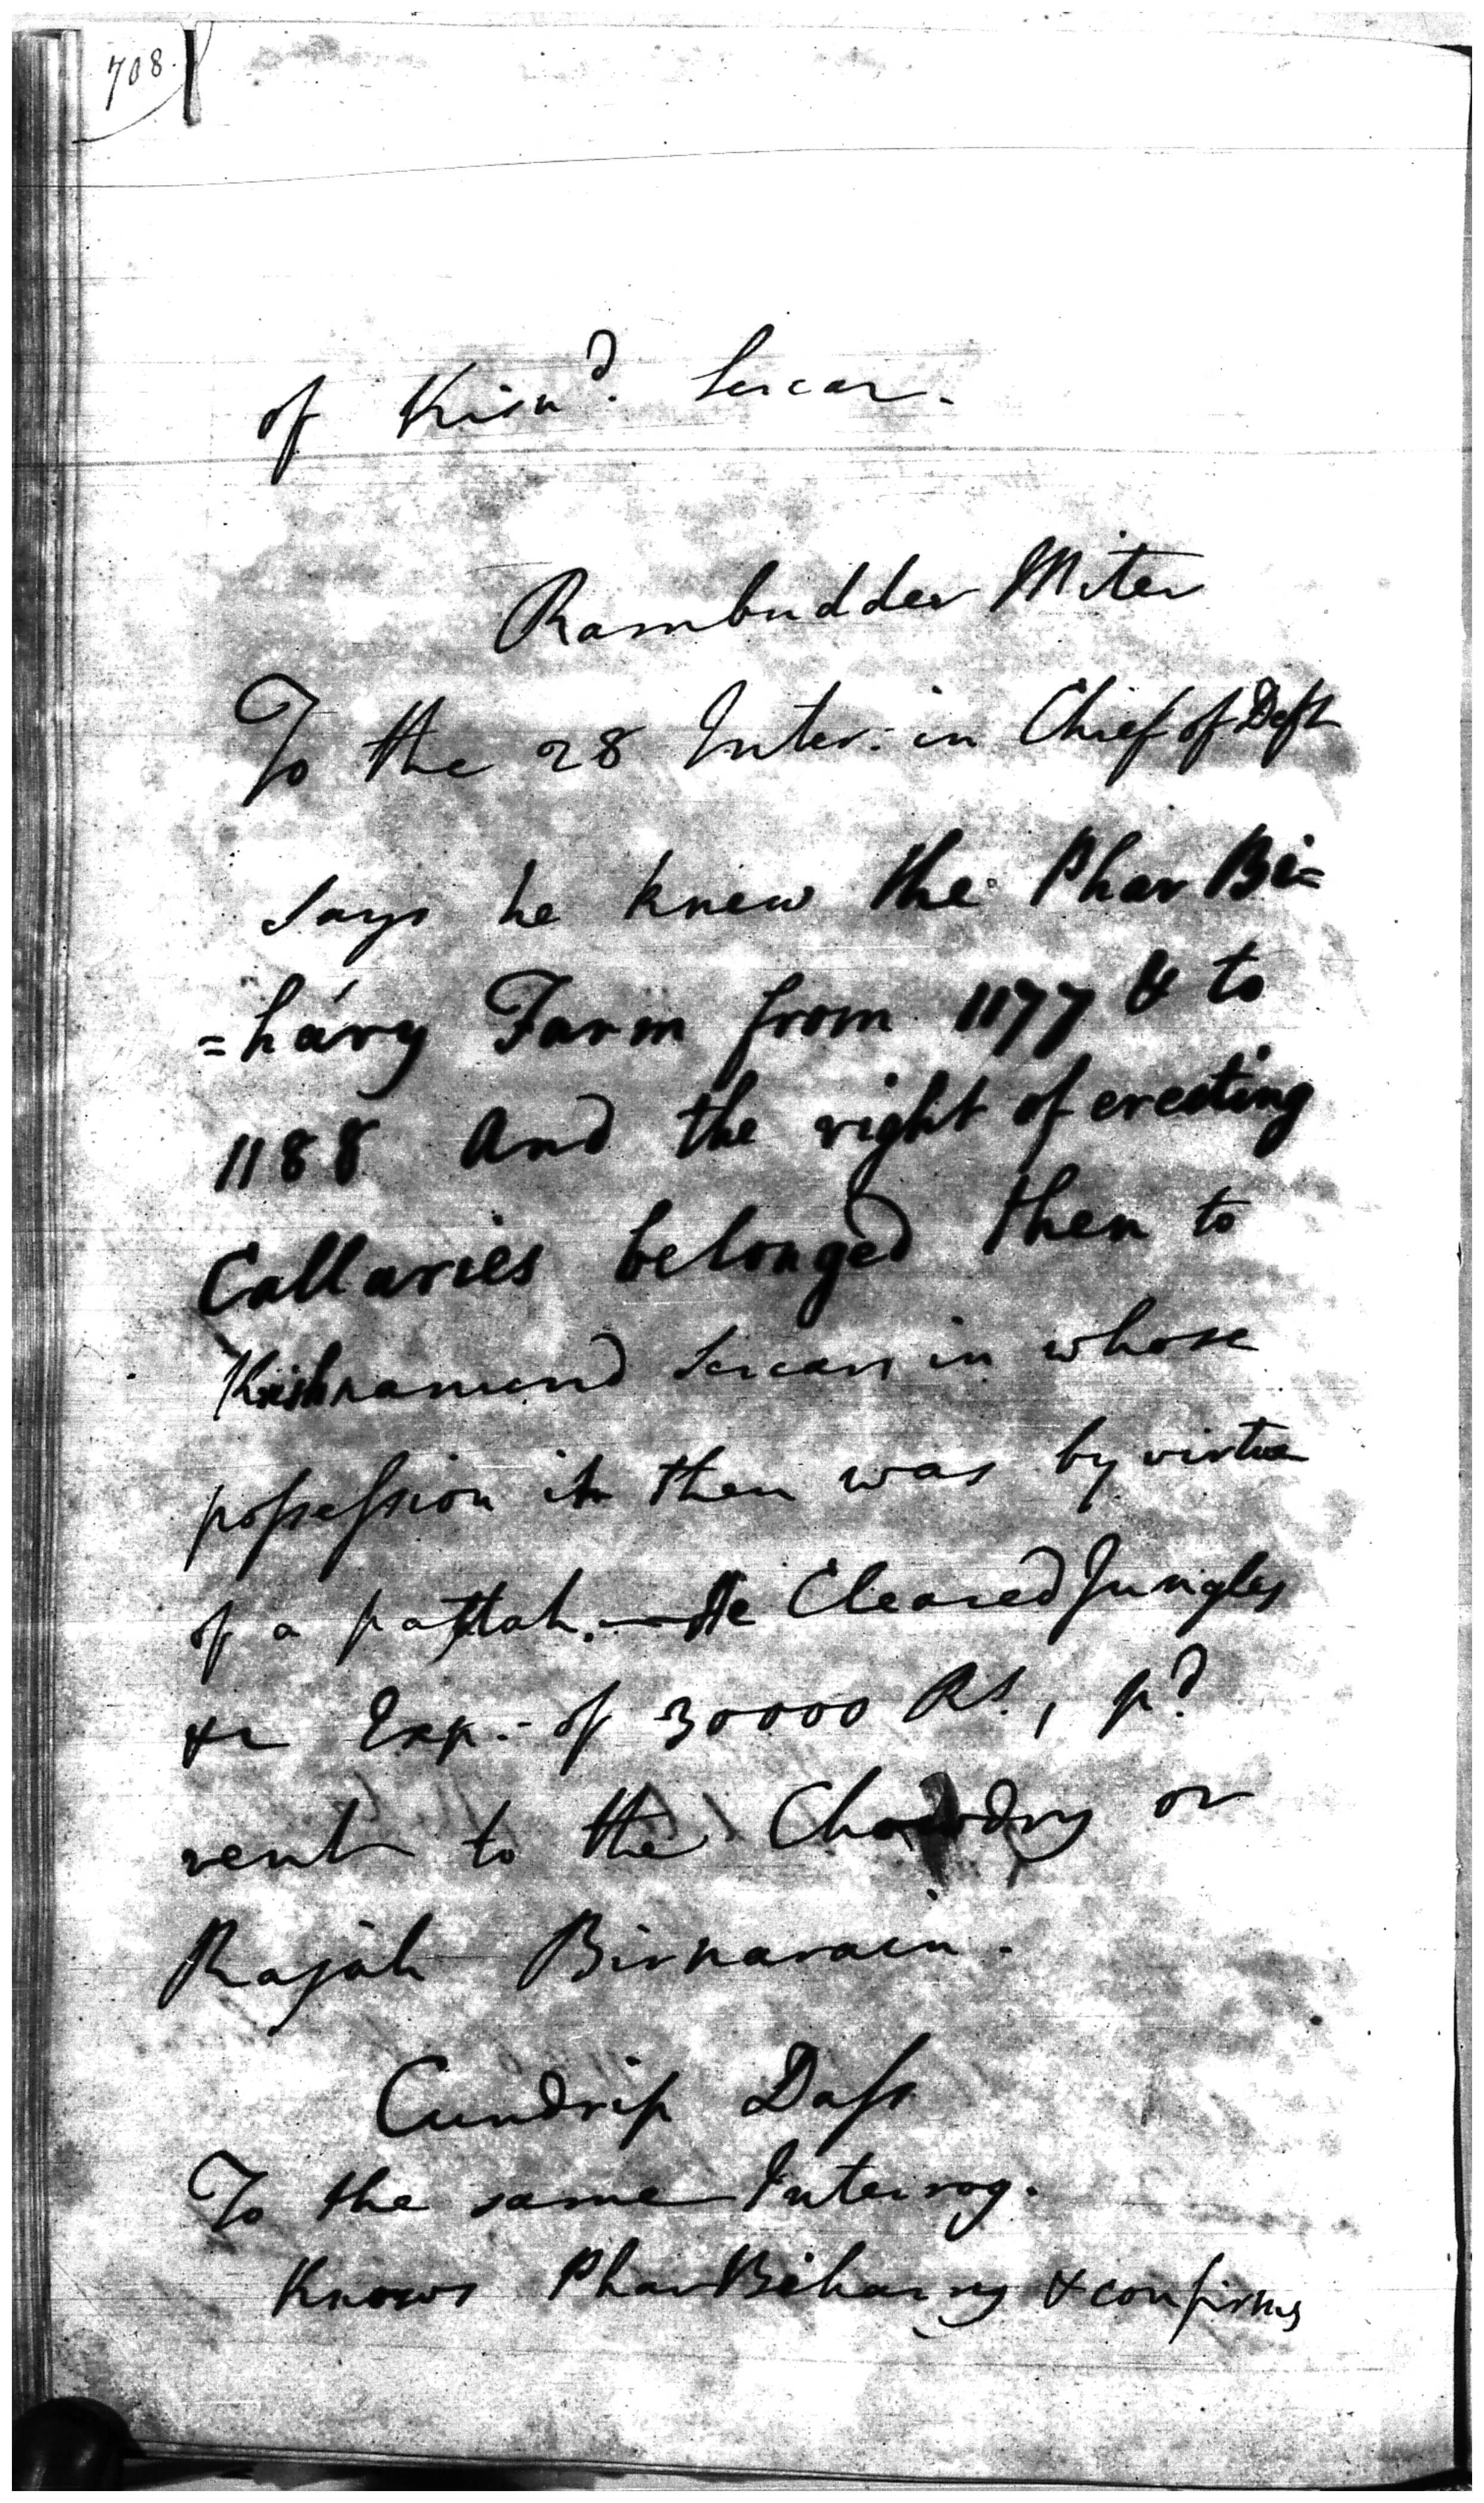 708.
of Kisnd. Sircar.
Rambudder Miter
To the 28 Inter: in Chief of Deft
Says he knew the Phar Bi=
=háry Farm from 1177 & to
1188 And the right of erecting
Callaries belonged then to
Krishnanund Sircar in whose
possession it then was by virtue
of a pattah. — He Cleared Jungles
&c Exp: of 30000 Rs., pd.
rent to the Chowdry or
Rajah Birnarain.
Cundrip Dass
To the same Interrog.
Knows Phar Biharry & confirms